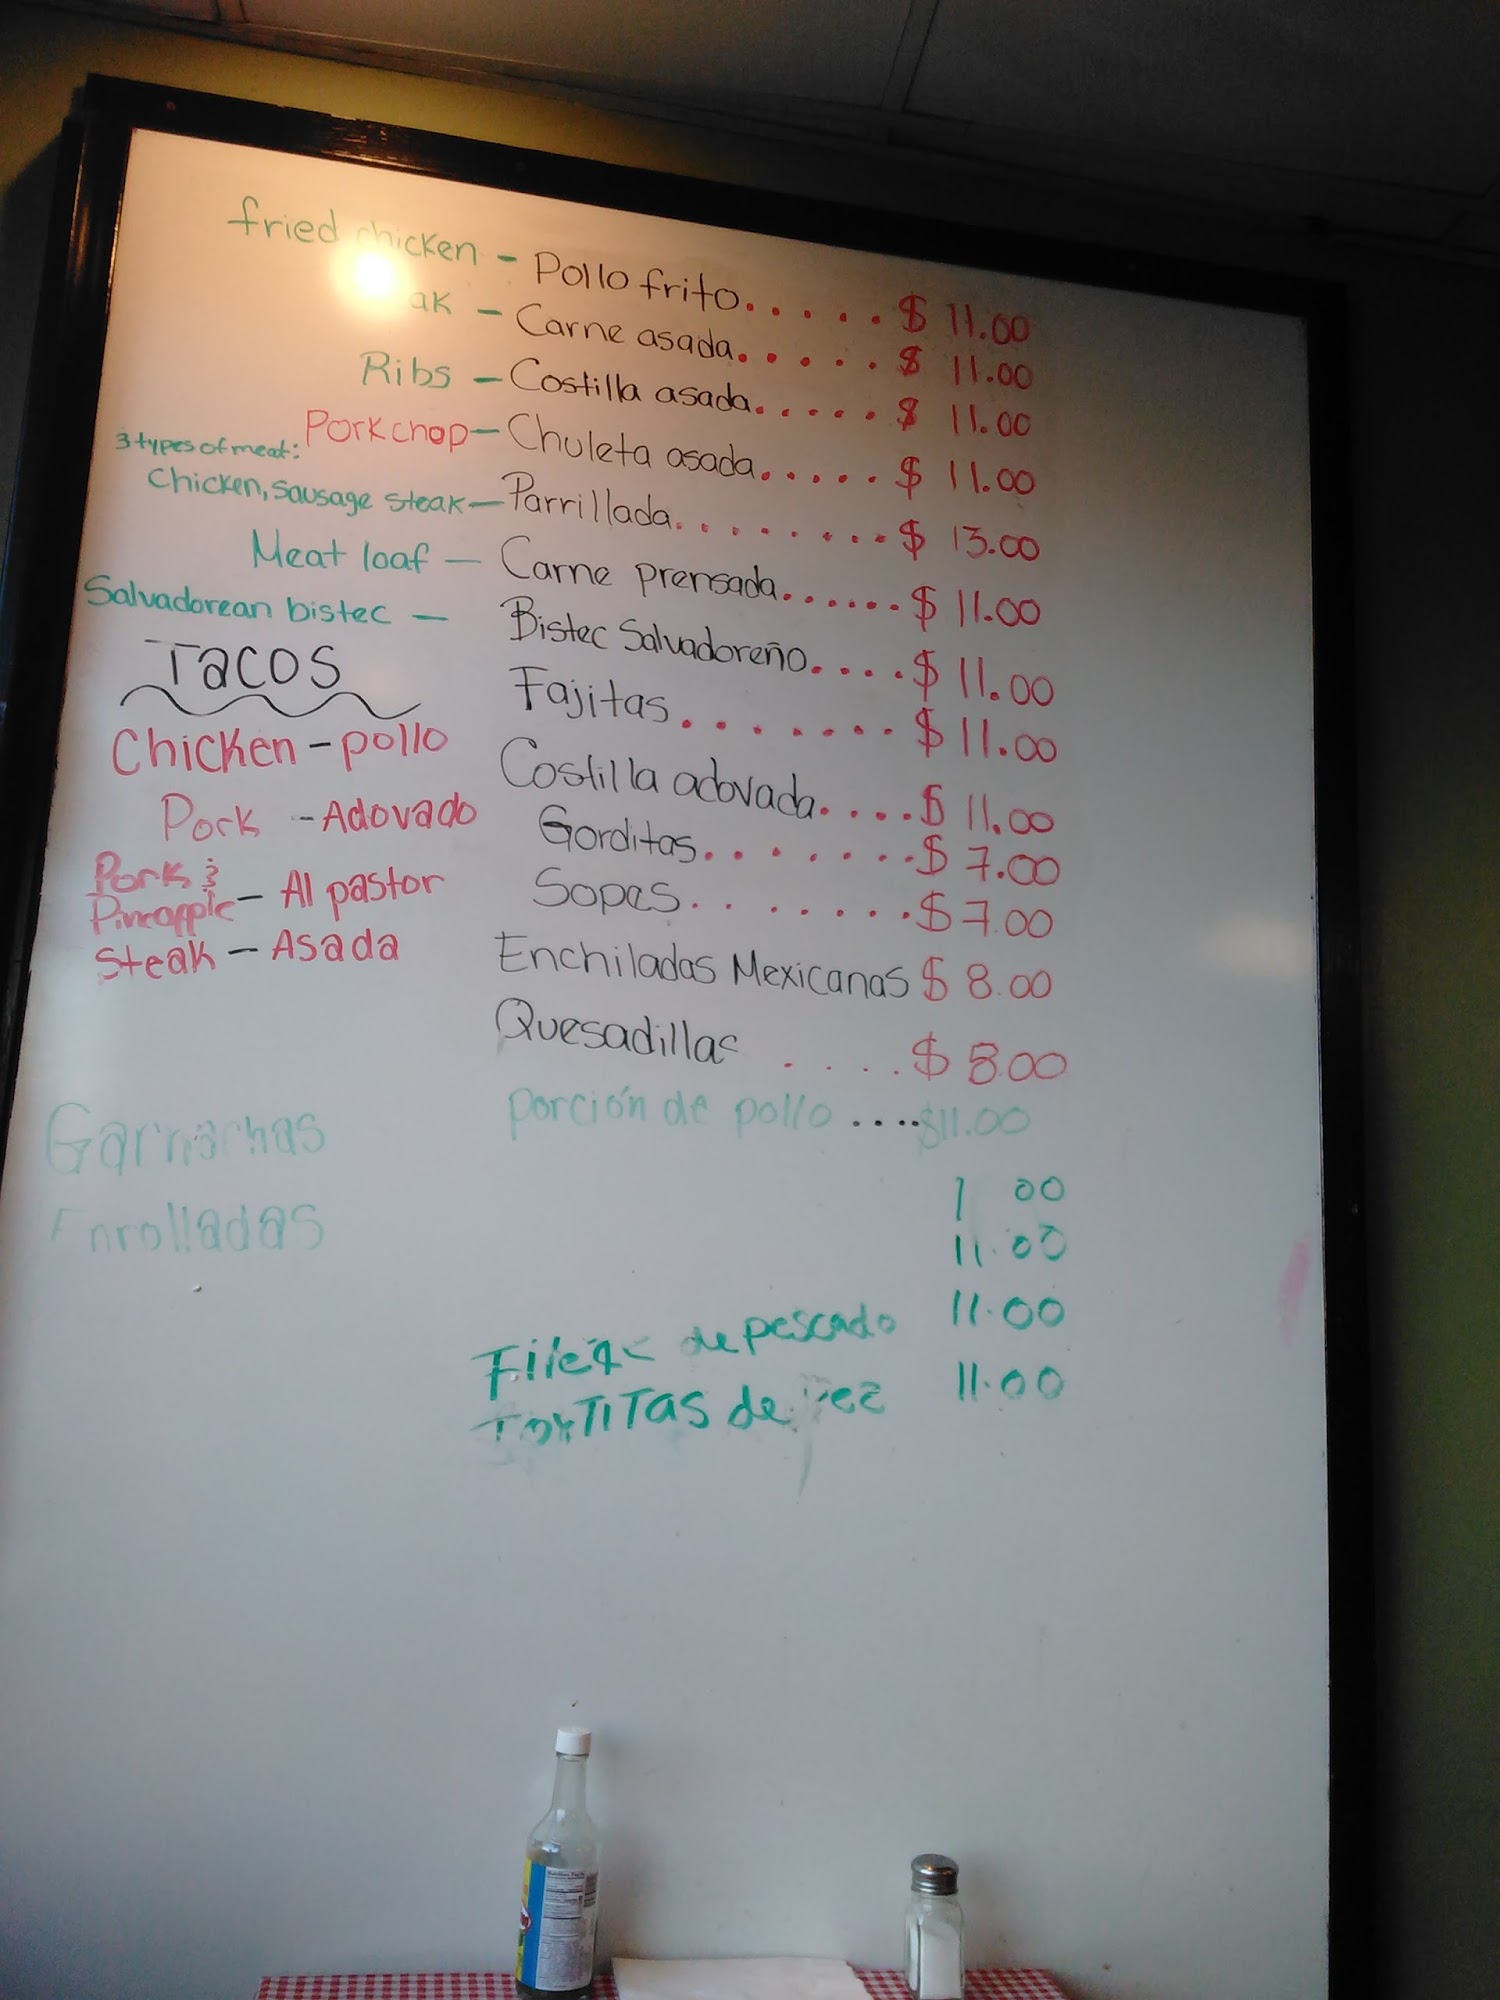 fried chicken - Pollo frito..... $ 11.00
- Carne asada..... $ 11.00
Ribs - Costilla asada..... $ 11.00
Pork chop - Chuleta asada..... $ 11.00
3 types of meat:
Chicken, sausage steak - Parrillada........ $ 13.00
Meat loaf - Carne prensada...... $ 11.00
Salvadorean bistec - Bistec Salvadoreño.... $ 11.00
Fajitas....... $ 11.00
Costilla adovada.... $ 11.00
Gorditas....... $ 7.00
Sopas....... $ 7.00
Enchiladas Mexicanas $ 8.00
Quesadillas .... $ 8.00
porción de pollo .... $11.00
00
11.00
11.00
de pescado 11.00
de
TACOS
Chicken - pollo
Pork - Adovado
Pork &
Pineapple - Al pastor
Steak - Asada
Garnachas
Enrolladas